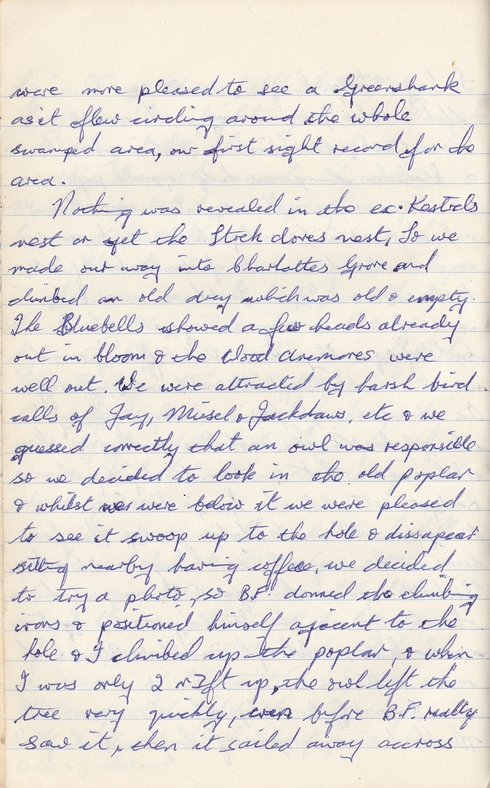 were more pleased to see a Greenshank
as it flew circling around the whole
swamped area, our first sight record for the
area.
Nothing was revealed in the ex. Kestrels
nest or yet the Stock doves nest, So we
made our way into Charlottes Grove and
climbed an old drey which was old & empty.
The Bluebells showed a few heads already
out in bloom & the Wood Anemones were
well out. We were attracted by harsh bird
calls of Jay, Missel & Jackdaws, etc & we
guessed correctly that an owl was responsible
so we decided to look in the old poplar
& whilst we were below it we were pleased
to see it swoop up to the hole & dissapear
sitting nearby having coffee, we decided
to try a photo, so B.F. donned the climbing
irons & positioned himself ajacent to the
hole & I climbed up the poplar, & when
I was only 2 or 3ft up, the owl left the
tree very quickly, even before B.F. really
saw it, then it sailed away accross